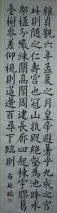 維貞觀六年孟夏之月皇帝避暑乎九成宮
此則隨之仁壽宮也冠山抗殿絕壑為池跨水
架楹分巖竦闕高閣周建長廊四起棟宇膠葛臺
榭參差仰視則迢遞百尋下臨則